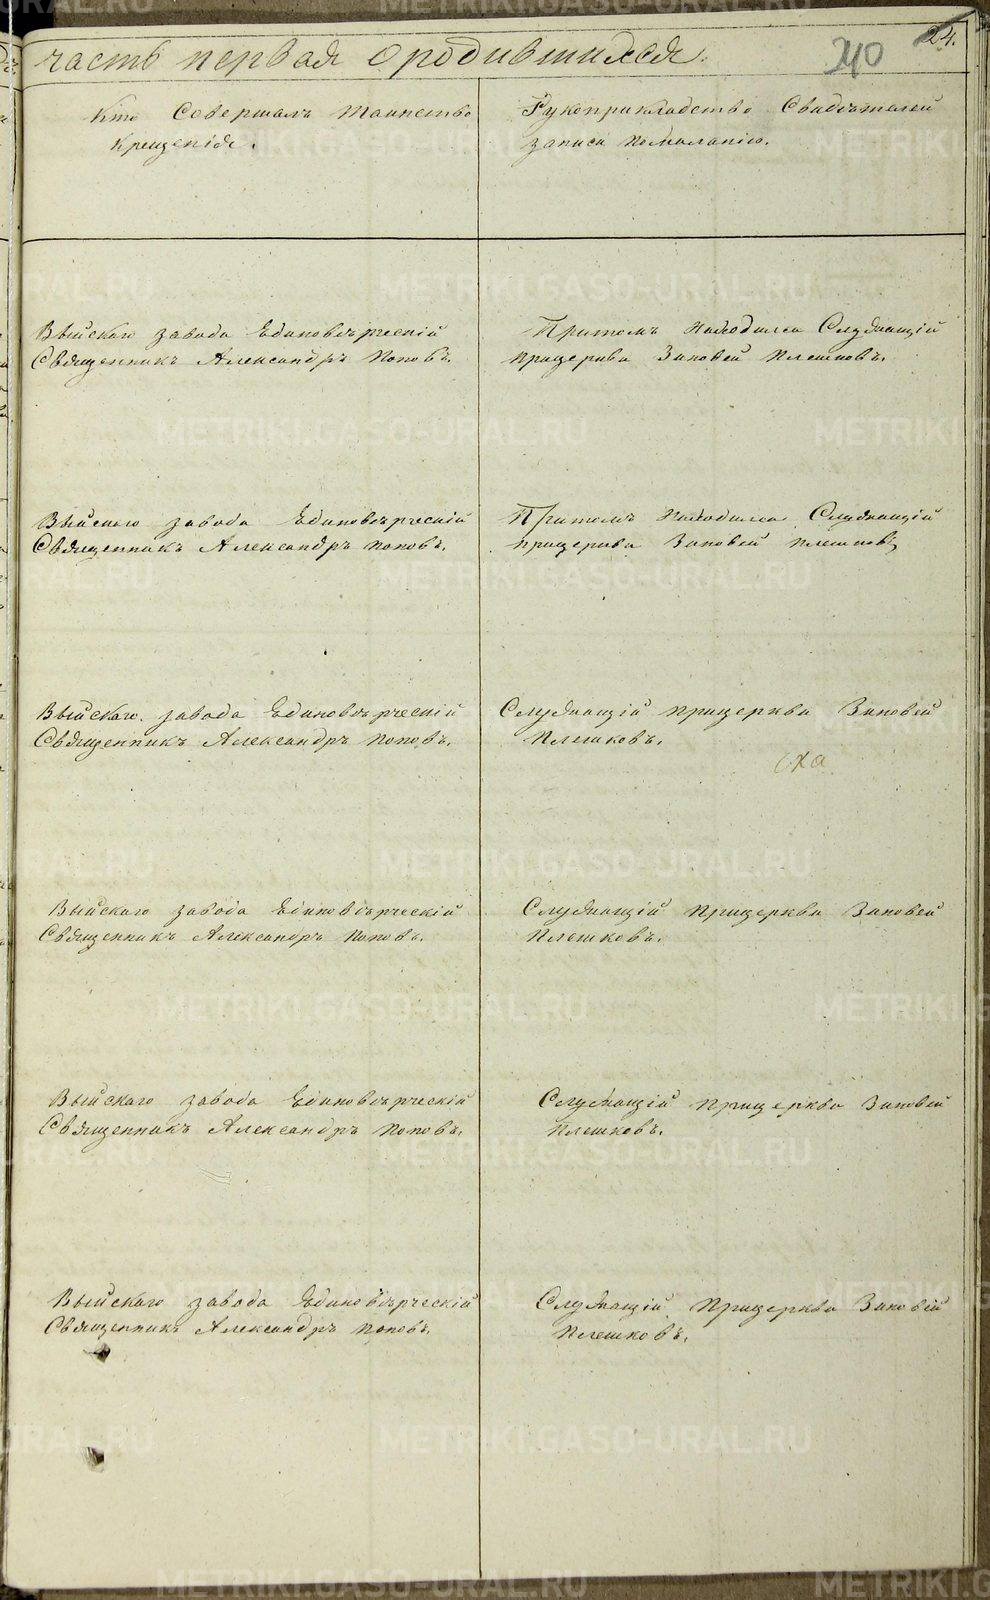 часть первая о родившихся.
210
24.
Кто Совершалъ Таинство
Крещенія.
Рукоприкладство Свидѣтелей
записи по желанію.
Выйскаго завода Единовѣрческій
Священникъ Александръ Поповъ.
Притомъ находился Служащій
прицеркви Зиновей Плешковъ.
Выйскаго завода Единовѣрческій
Священникъ Александръ Поповъ.
Притомъ Находился Служащій
прицеркви Зиновей Плешковъ
Выйскаго завода Единовѣрческій
Священникъ Александръ Поповъ.
Служащій прицеркви Зиновей
Плешковъ.
Выйскаго завода Единовѣрческій
Священникъ Александръ Поповъ.
Служащій прицеркви Зиновей
Плешковъ.
Выйскаго завода Единовѣрческій
Священникъ Александръ Поповъ.
Служащій прицеркви Зиновей
Плешковъ.
Выйскаго завода Единовѣрческій
Священникъ Александръ Поповъ.
Служащій Прицеркви Зиновей
Плешковъ.
METRIKI.GASO-URAL.RU